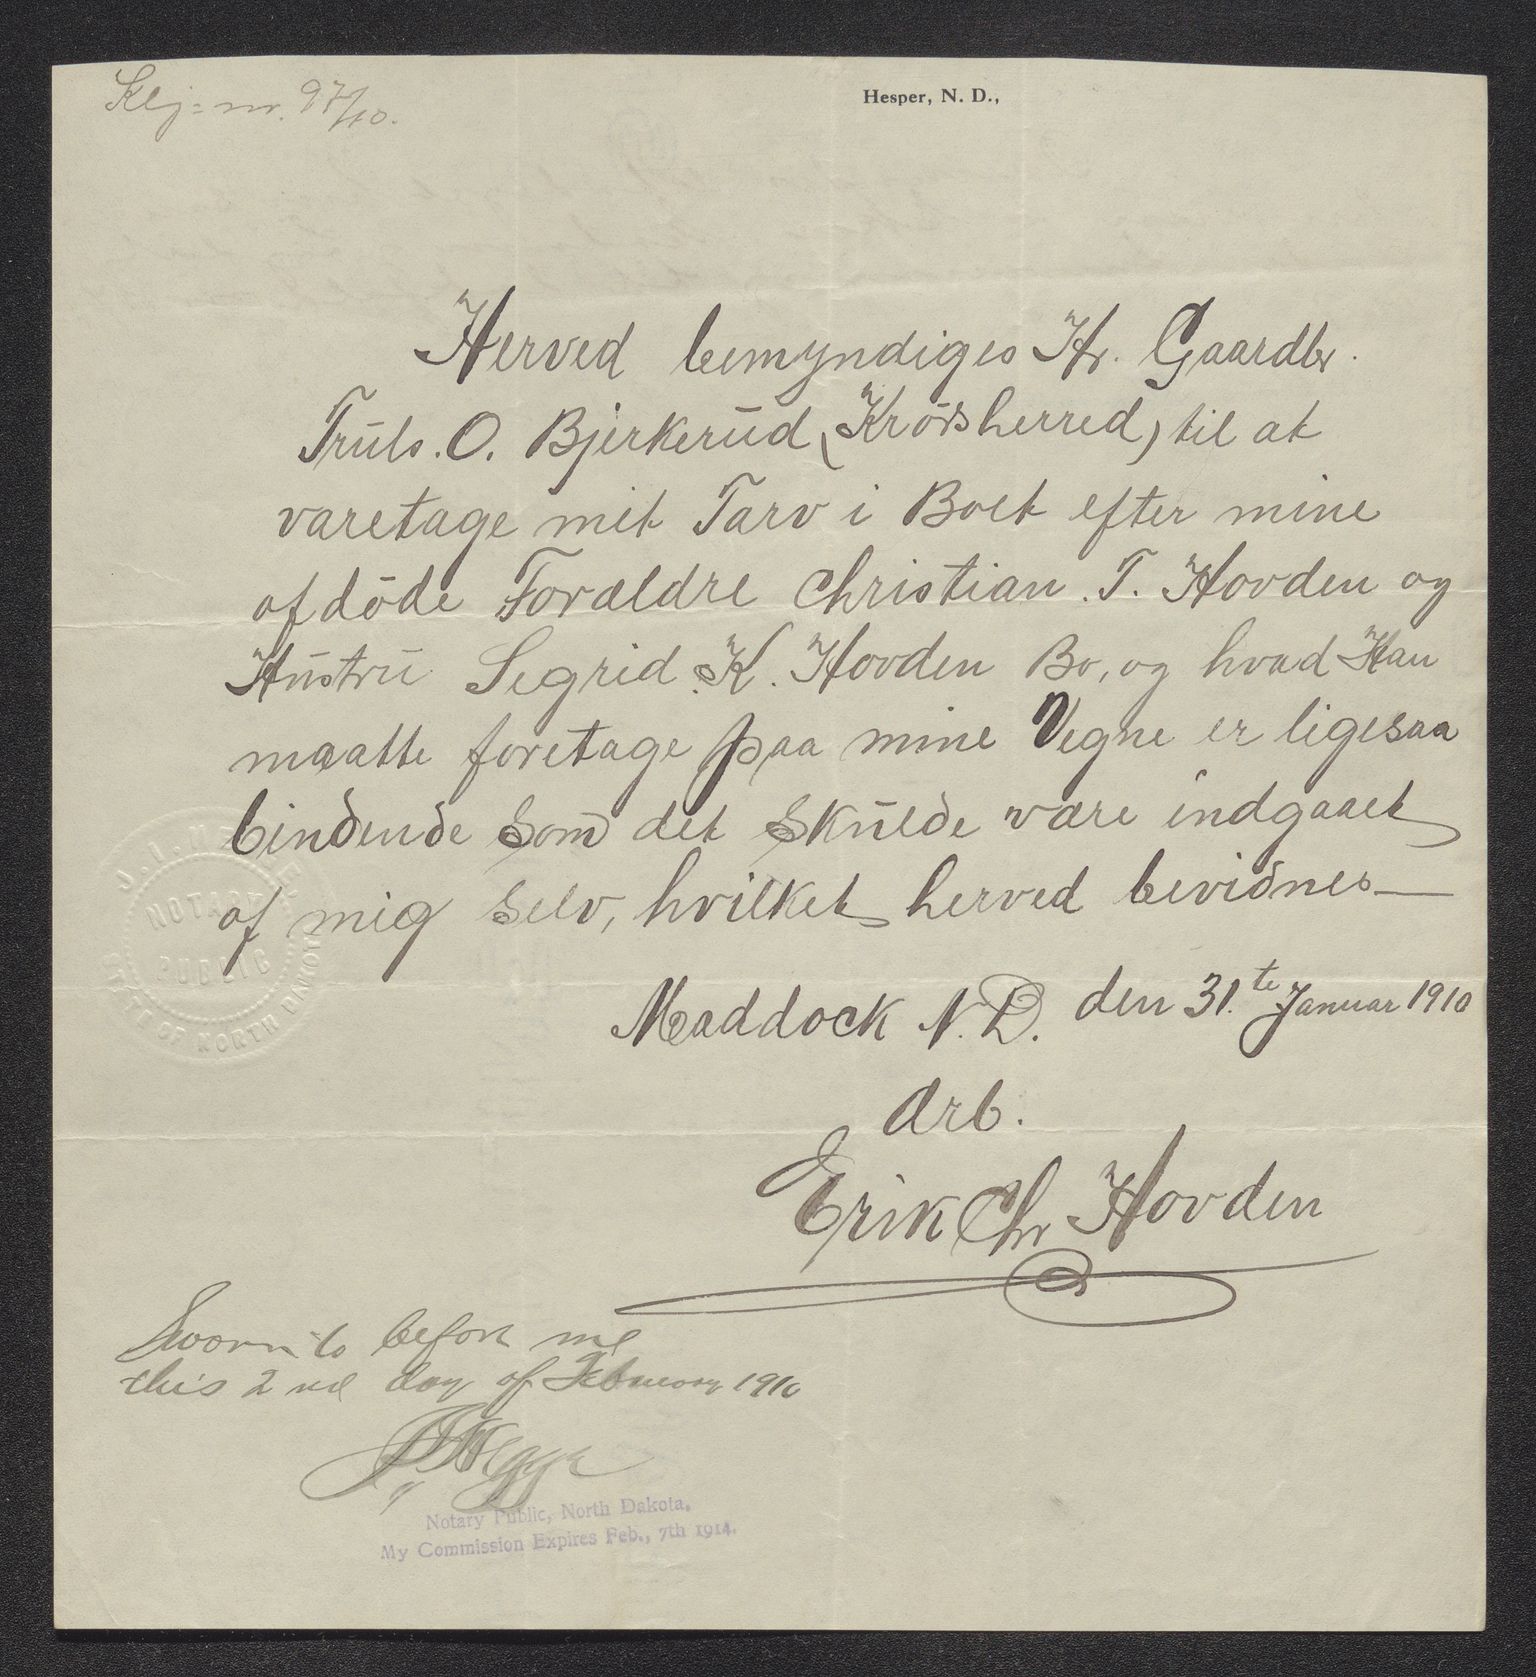 Skj=nr. 97/10.
Hesper, N. D.,
Herved bemyndiges Hr. Gaardbr.
Truls. O. Bjerkerud (Krødsherred) til at
varetage mit Tarv i Boet efter mine
afdöde Forældre Christian. T. Hovden og
Hustru Segrid. K. Hovden Bo, og hvad Han
maatte foretage paa mine Vegne er ligesaa
bindende som det skulde være indgaaet
af mig selv, hvilket herved bevidnes—
Maddock N. D. den 31.te Januar 1910
Ærb.
Erik Chr Hovden
Sworn to before me
this 2nd day of February 1910
Notary Public, North Dakota.
My Commission Expires Feb., 7th 1914.
NOTARY
PUBLIC
STATE OF NORTH DAKOTA